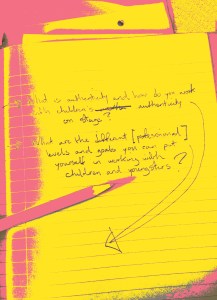 What is authenticity and how do you work
with children's authenticity
on others?
What are the different [professional]
levels and goals you can put
yourself in working with
children and youngsters?